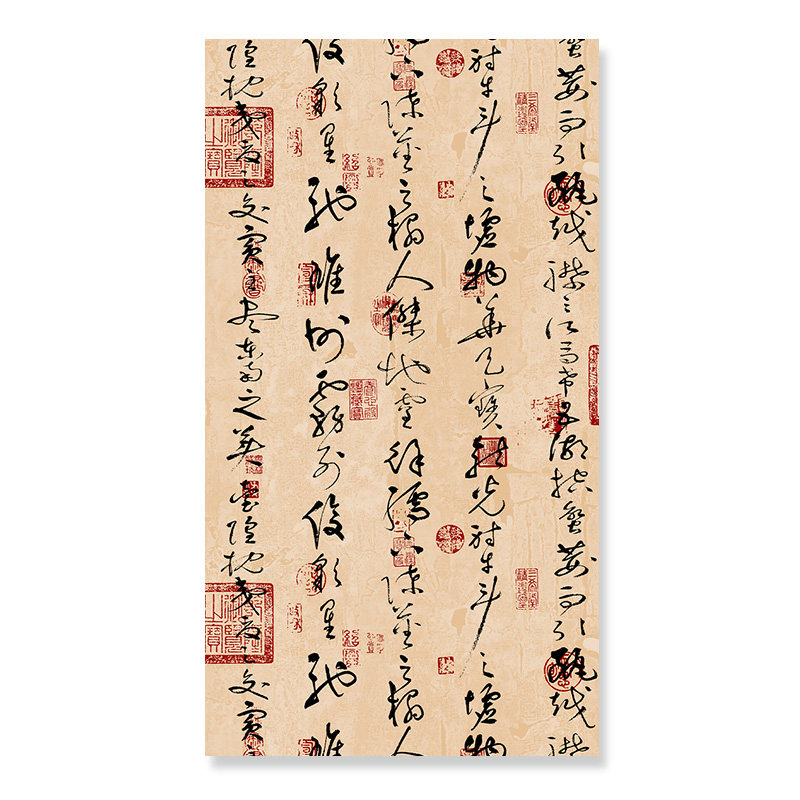 蠻荊而引甌越襟三江而帶五湖控蠻荊而引甌越襟
射牛斗之墟物華天寶龍光射牛斗之墟物
下陳蕃之榻人傑地靈徐孺下陳蕃之榻人
俊彩星馳雄州霧列俊彩星馳雄
隍枕夷夏之交賓主盡東南之美臺隍枕夷夏之交賓